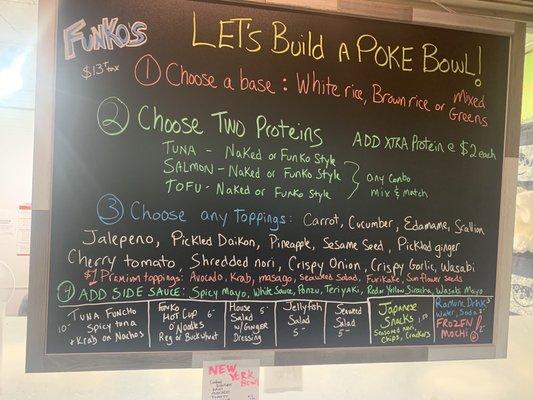 FUNKO'S
$13 + tax
LET'S Build A POKE BOWL!
1 Choose a base: White rice, Brown rice or Mixed Greens
2 Choose Two Proteins
ADD XTRA Protein @ $2 each
TUNA - Naked or Funko Style
SALMON - Naked or Funko Style
TOFU - Naked or Funko Style
any combo
mix & match
3 Choose any toppings: Carrot, Cucumber, Edamame, Scallion
Jalepeno, Pickled Daikon, Pineapple, Sesame Seed, Pickled ginger
Cherry tomato, Shredded nori, Crispy Onion, Crispy Garlic, Wasabi
$1 Premium toppings: Avocado, Krab, masago, Seaweed Salad, Furikake, Sunflower Seeds
4 ADD SIDE SAUCE: Spicy Mayo, White Sauce, Ponzu, Teriyaki, Red or Yellow Siracha, Wasabi Mayo
TUNA FUNCHO
10-
Spicy tuna
+ Krab on Nachos
Funko
HOT CUP 6-
O' Noodles
Reg or Buckwheat
House 5-
Salad
w/ GINGER
Dressing
Jellyfish
Salad
5-
Seaweed
Salad
5-
Japanese
Snacks
Seasoned Nori,
Chips, Crackers
Ramune Drink 3-
Water, Soda
FROZEN
MOCHI
NEW YORK
BOWL